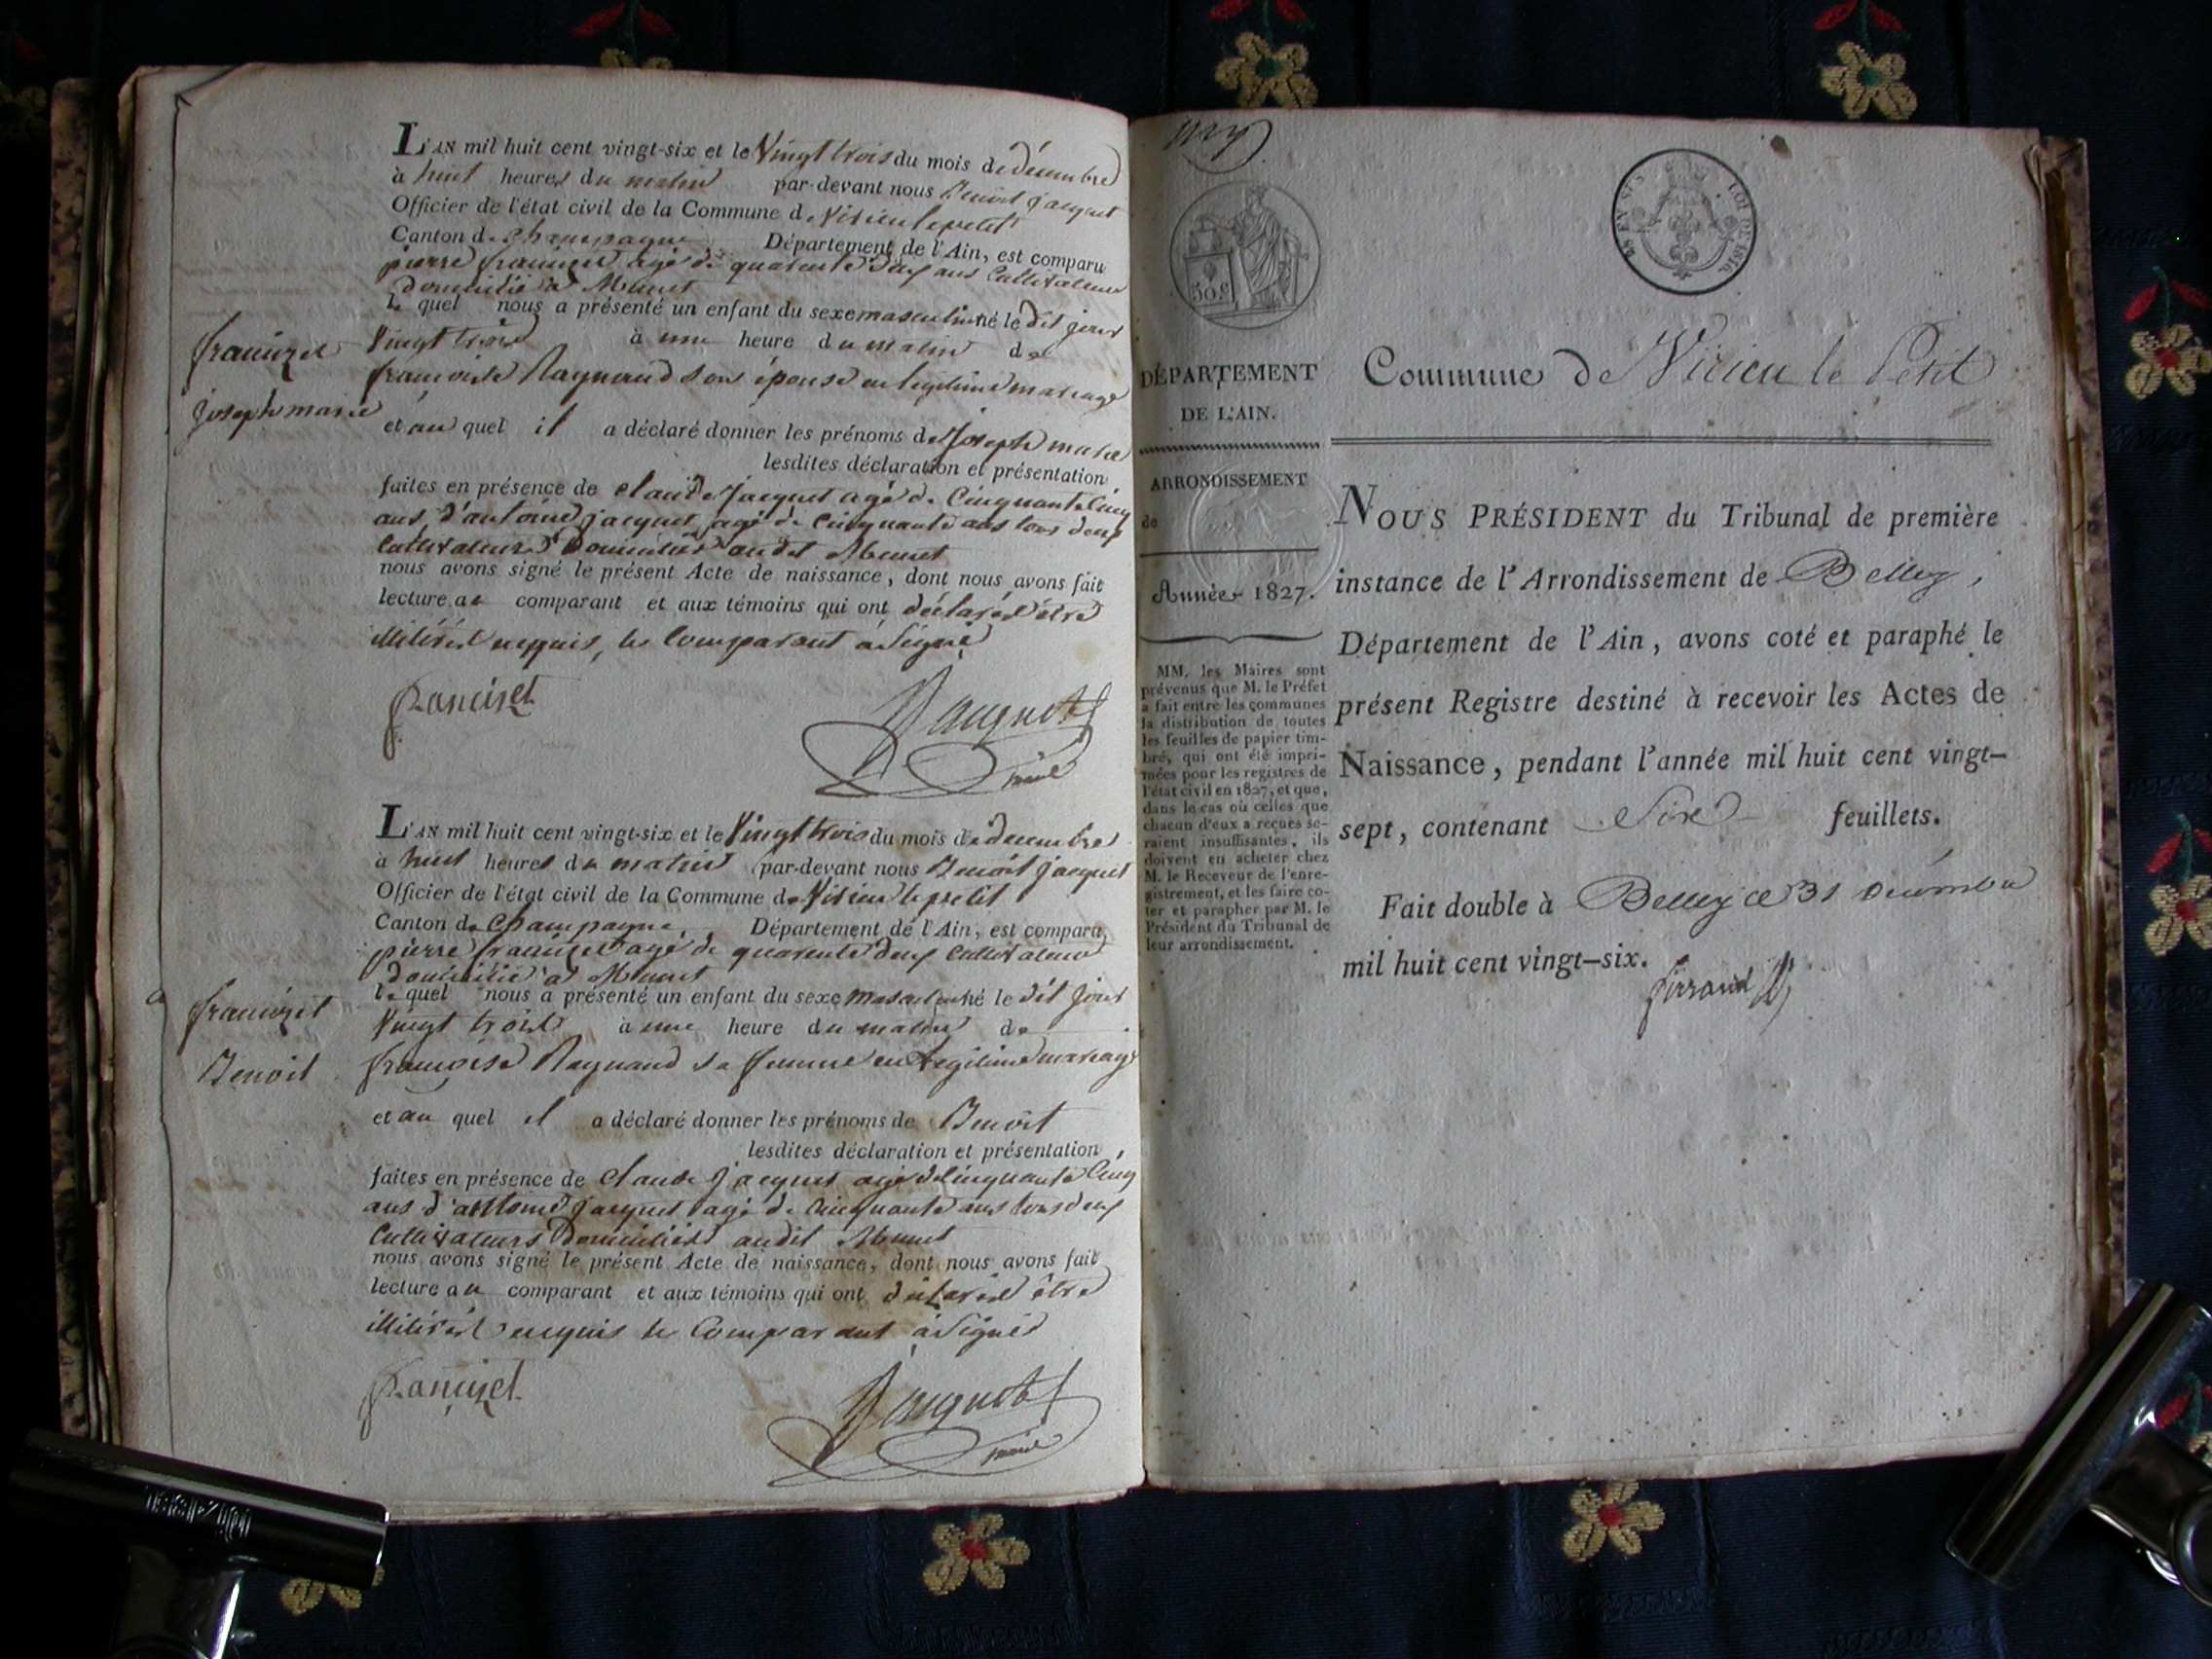 L'AN mil huit cent vingt-six et le Vingt trois du mois de décembre
à huit heures du matin par-devant nous Benoit Jacquet
Officier de l'état civil de la Commune de Virieu le petit
Canton de Champagne Département de l'Ain, est comparu
pierre francizet agé de quarente deux ans Cultivateur
domicilié à Munet
Le quel nous a présenté un enfant du sexe masculin né le dit jour
francizet
Vingt trois à une heure du matin de
francoise Raynaud son épouse en legitime mariage
joseph marie
et au quel il a déclaré donner les prénoms de Joseph marie
lesdites déclaration et présentation
faites en présence de claude Jacquet agé de Cinquante Cinq
ans, d'antoine jacquet agé de Cinquante ans tous deux
Cultivateurs Domiciliés audit Munet
nous avons signé le présent Acte de naissance, dont nous avons fait
lecture au comparant et aux témoins qui ont déclaré être
illitérés requis, le Comparant à Signé
francizet
Jacquet
maire
L'AN mil huit cent vingt-six et le Vingt trois du mois de decembre
à huit heures du matin par-devant nous Benoit Jacquet
Officier de l'état civil de la Commune de Virieu le petit
Canton de Champagne, Département de l'Ain, est comparu
pierre francizet agé de quarente deux Cultivateur
domicilié à Munet
le quel nous a présenté un enfant du sexe masculin né le dit jour
francizet
Vingt trois à une heure du matin de
Benoit
francoise Raynaud sa femme en Legitime mariage
et au quel il a déclaré donner les prénoms de Benoit
lesdites déclaration et présentation
faites en présence de claude Jacquet agé de Cinquante Cinq
ans d'antoine Jacquet agé de Cinquante ans tous deux
Cultivateurs Domiciliés audit Munet
nous avons signé le présent Acte de naissance, dont nous avons fait
lecture au comparant et aux témoins qui ont déclaré être
illitérés requis le Comparant à Signé
francizet
Jacquet
maire
50.c
LOI DE 1816.
DÉPARTEMENT
DE L'AIN.
ARRONDISSEMENT
de
Année 1827.
MM. les Maires sont
prévenus que M. le Préfet
a fait entre les communes
la distribution de toutes
les feuilles de papier tim-
bré, qui ont été impri-
mées pour les registres de
l'état civil en 1827, et que,
dans le cas où celles que
chacun d'eux a reçues se-
raient insuffisantes, ils
doivent en acheter chez
M. le Receveur de l'enre-
gistrement, et les faire co-
ter et parapher par M. le
Président du Tribunal de
leur arrondissement.
Commune de Virieu le Petit
NOUS PRÉSIDENT du Tribunal de première
instance de l'Arrondissement de Belley,
Département de l'Ain, avons coté et paraphé le
présent Registre destiné à recevoir les Actes de
Naissance, pendant l'année mil huit cent vingt-
sept, contenant Six feuillets.
Fait double à Belley ce 31 Décembre
mil huit cent vingt-six.